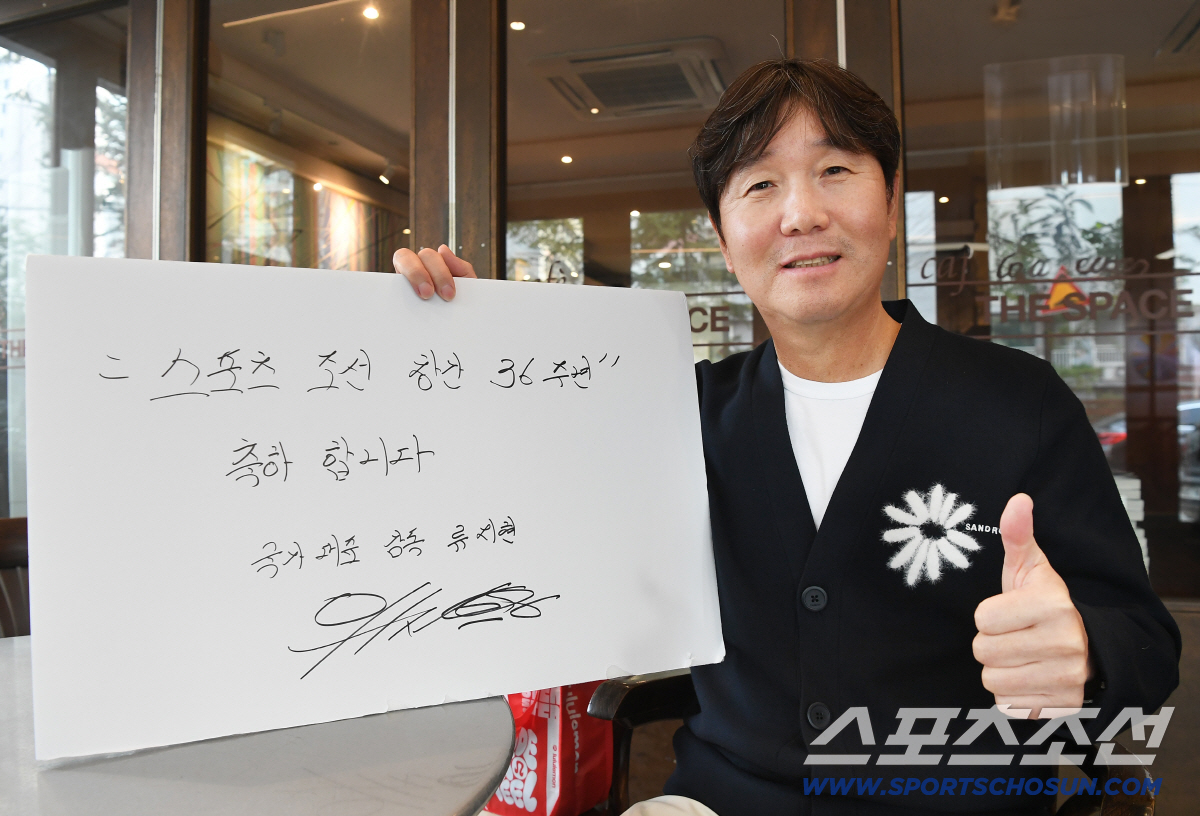 " 스포츠 조선 창간 36 주년"
축하 합니다
국가대표 감독 류지현
THE SPACE
CE
SANDRO
lululemon
스포츠조선
WWW.SPORTSCHOSUN.COM